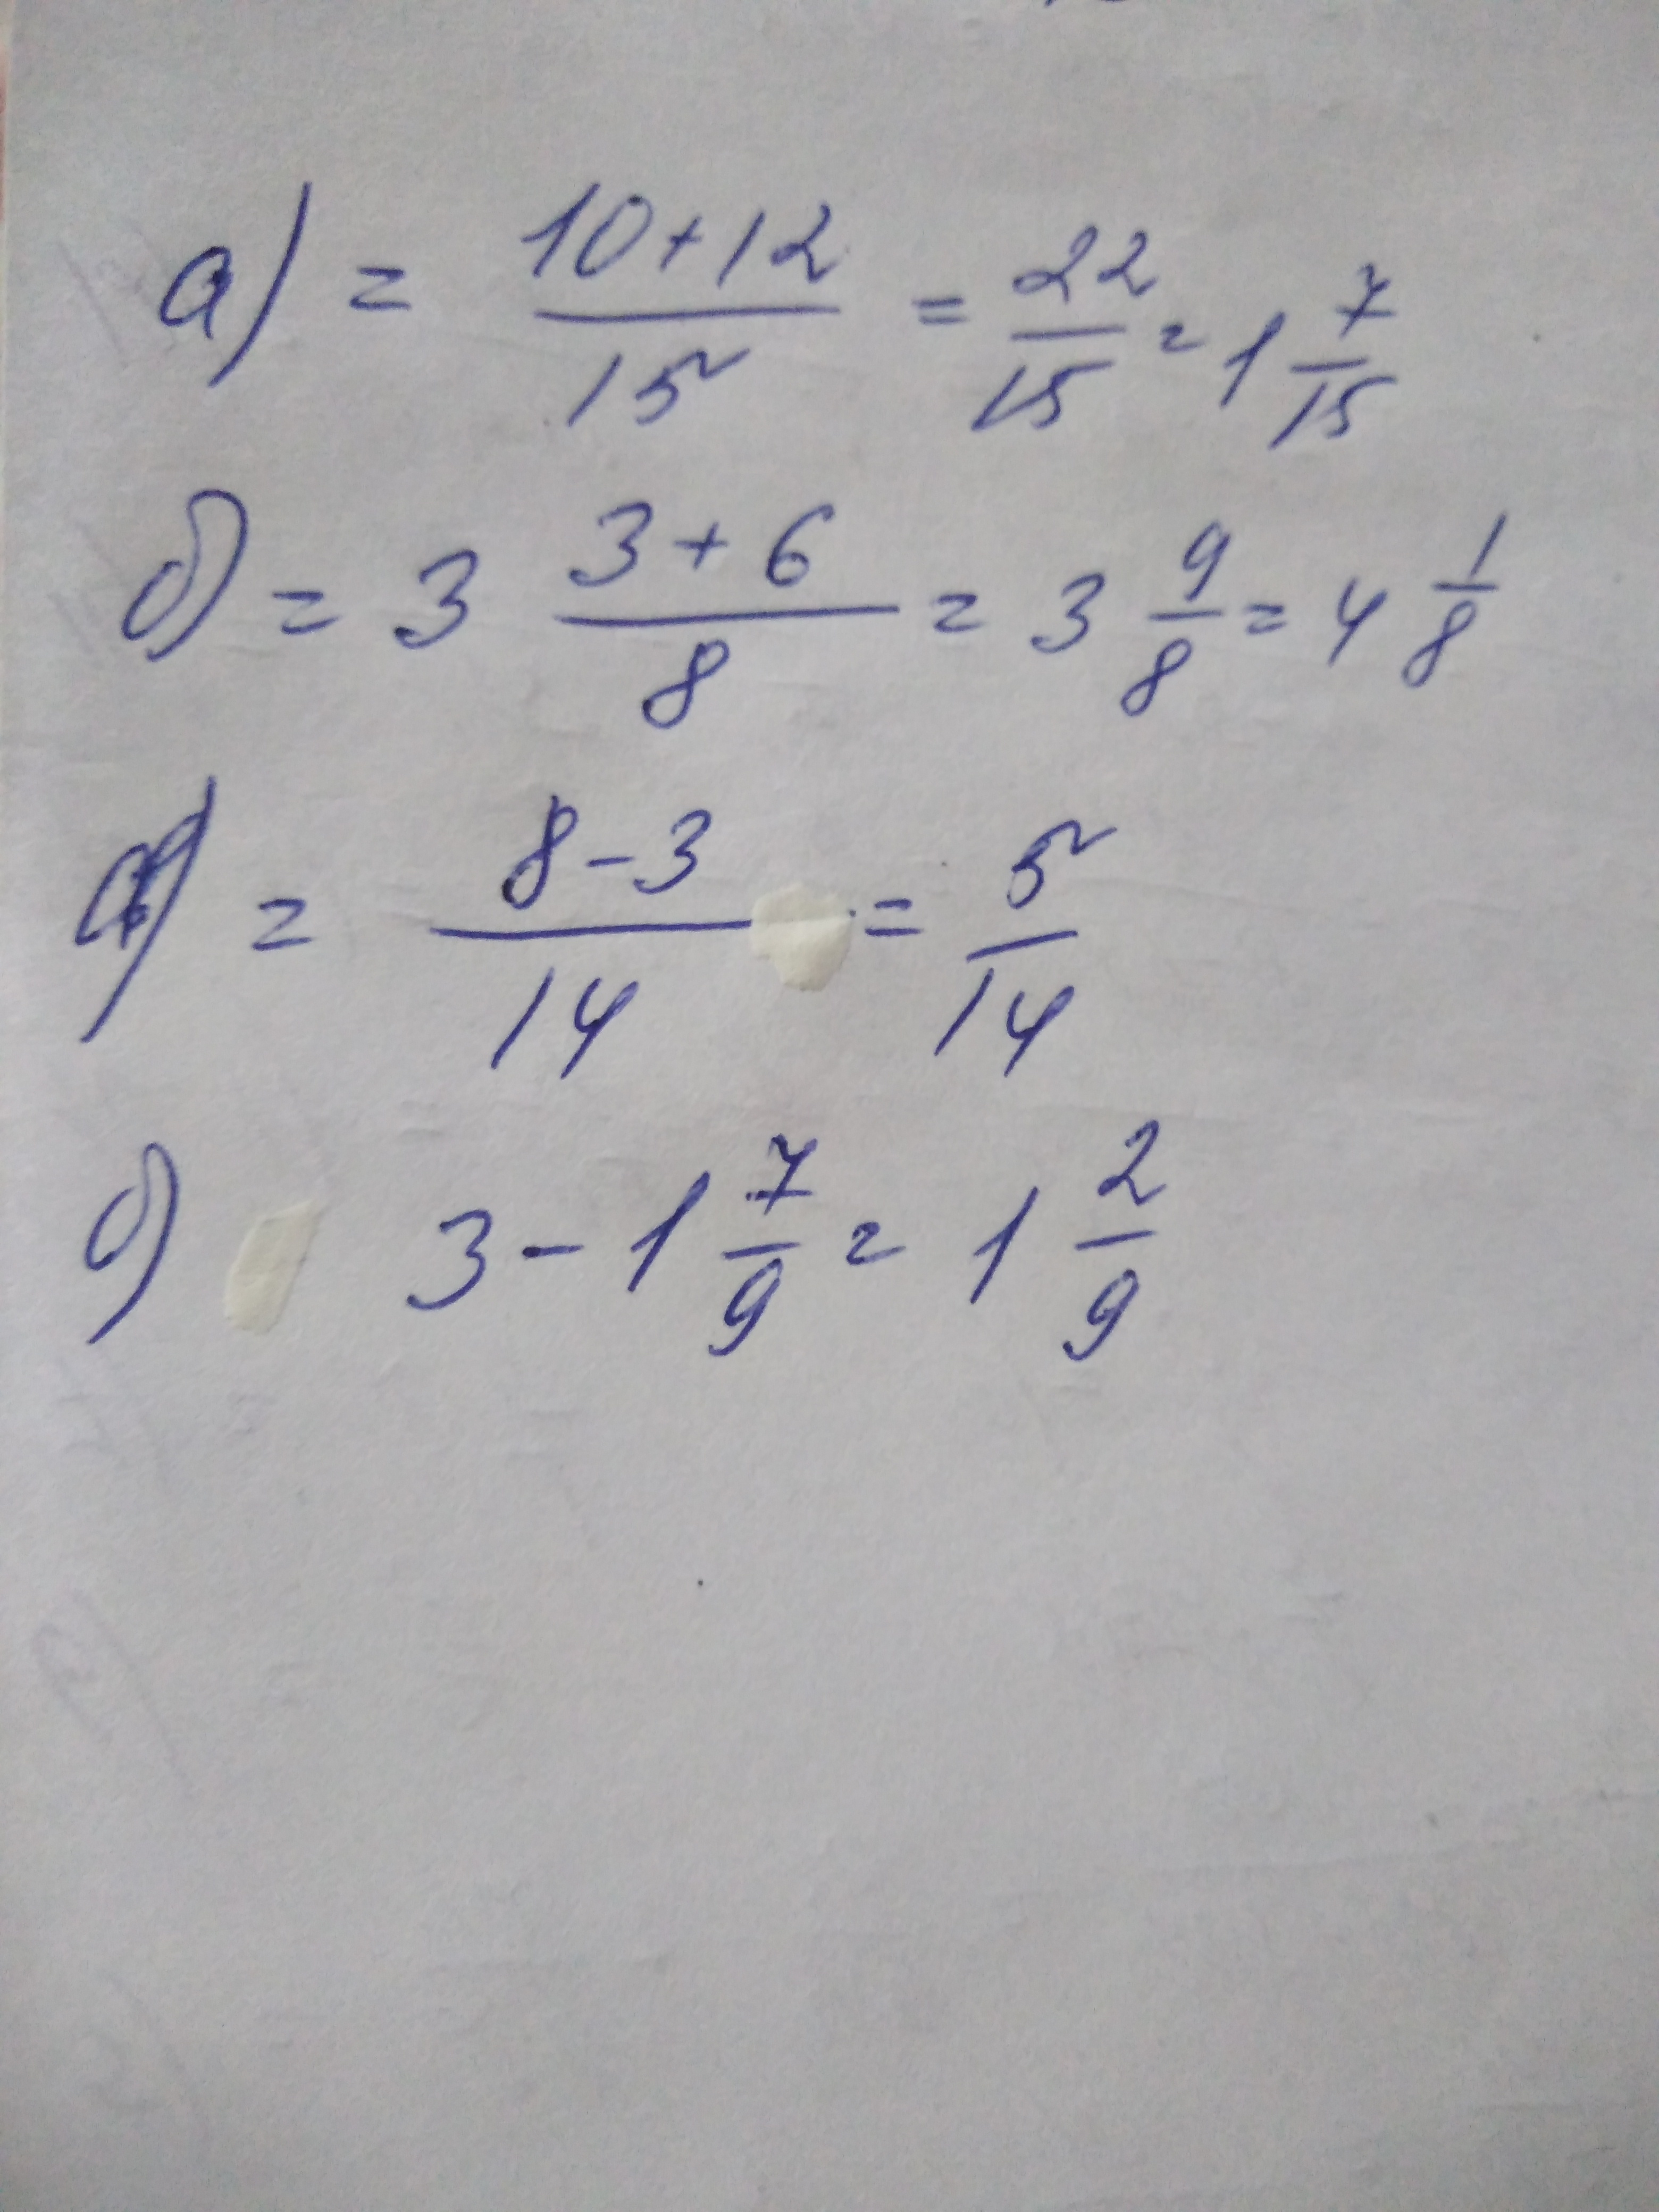 а) = 10+12/15 = 22/15 = 1 7/15
б) = 3 3+6/8 = 3 9/8 = 4 1/8
= 8-3/14 = 5/14
б) 3 - 1 7/9 = 1 2/9